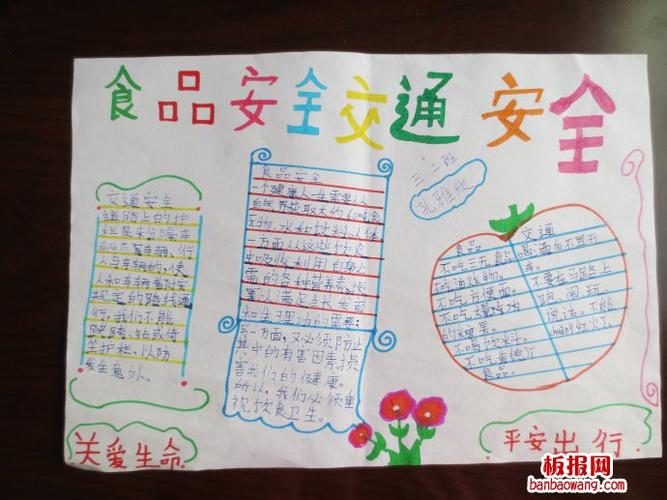 食品安全交通安全
三、二班
交通安全
道路上的护
栏是来分隔车
人与车辆的，使
人和车辆各对安
规定的路线通
行。我们不能
跨越、钻或倚
坐护栏，以防
发生意外。
食品安全
一个健康人一生需要从
自然界摄取大约60吨食
物、水和饮料。人体
一方面从这些饮食
中吸收利用自身必
需的各种营养素，
以满足生长发育
和生理功的需要；
另一方面，又必须防止
其中的有害因素损
害我们的健康。
所以，我们必须重
视饮食卫生。
食品
不吃三无食品
不吃油炸物。
不吃方便面。
不吃
的
不喝饮料。
不吃
食品。
交通
喝酒后不开
车。
不要在马路上
跑、闹、玩、
说话。不能
闯红灯。
关爱生命
平安出行
板报网
banbaowang.com